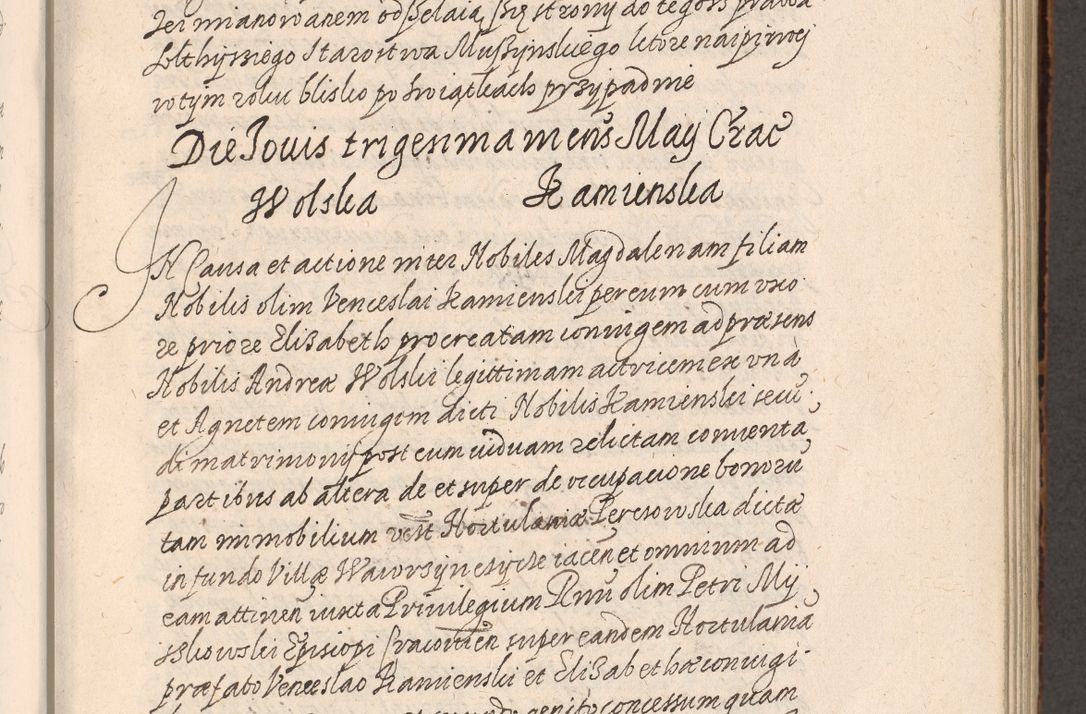 Jej mianowanem od Belaia Brze strony do tegoż prawa
Solthysiego Starostwa Muszynskiego ktore naipirwej
w tym roku blisko po Swiątkach przypadnie
Die Jovis trigesima mens May Crac
Wolska Kamienska
IN Causa et actione inter Nobiles Magdalenam filiam
Nobilis olim Venceslai Kamienski per eum cum uxo
re priore Elisabeth procreatam coniugem ad præsens
Nobilis Andreæ Wolski legittimam actricem ex unà
et Agnetem coniugem dicti Nobilis Kamienski secu
di matrimonij post eum viduam relictam conventa
partibus ab altera de et super de occupacione bonoru
tam immobilium vest Hortulaniæ Peresowska dictæ
in fundo Villæ Wawrsyncsycze iacen et omnium ad
eam attinen iuxta Privilegium Rmi olim Petri My
szkowski Episcopi Cracovien super eandem Hortulania
præfato Venceslao Kamienski et Elisabethæ coniugi
genito concessum quam